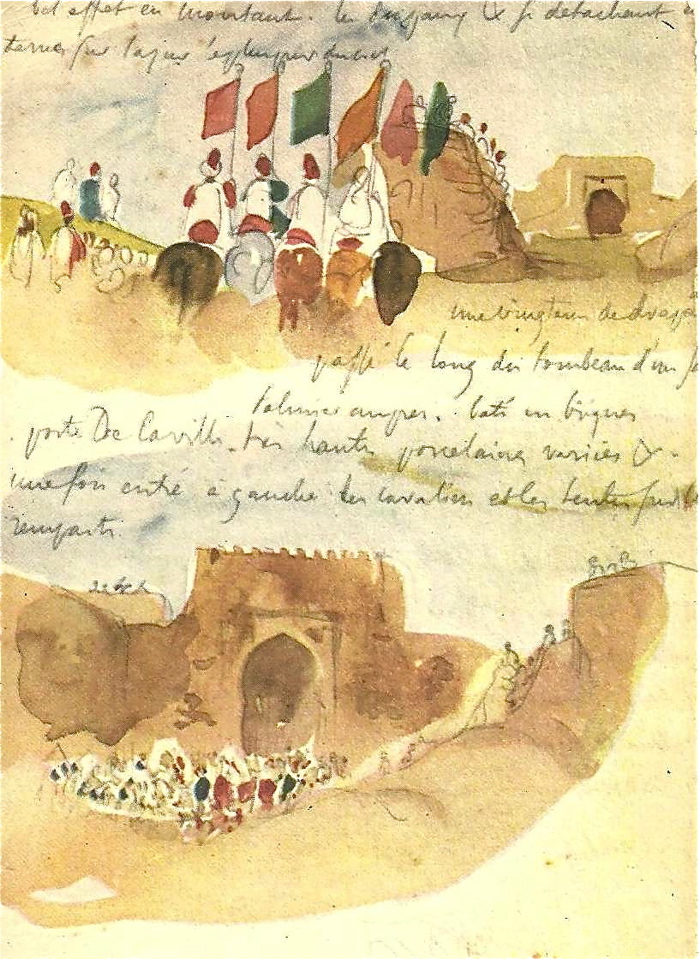 bel effet en montant. les drapeaux & se detachant
ternes sur l'azur
une vingtaine de drap
passé le long du tombeau d'un
palmier aupres. bati en briques
porte De la ville. très haute porcelaines variées &.
une fois entré à gauche les cavaliers et les tentes sur les
remparts.